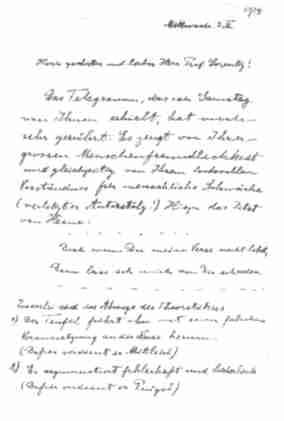 Mittwoch 3. II.
Hoch geehrter und lieber Herr Prof. Lorentz!
Das Telegramm, das ich Samstag
von Ihnen erhielt, hat mich
sehr gerührt. Es zeugt von Ihrer
grossen Menschenfreundlichkeit
und gleichzeitig von Ihrem
Verständnis für menschliche Schwäche
(verletzter Autorstolz!)
von Heine:
Und wenn Du meine Verse nicht lobst,
Dann lass ich mich von Dir scheiden.
des Theoretikers
1) Der Teufel führt ihn mit einer falschen
Voraussetzung an der Nase herum.
(Dafür verdient er Mitleid)
2) Er argumentiert fehlerhaft und liederlich
(Dafür verdient er Prügel)